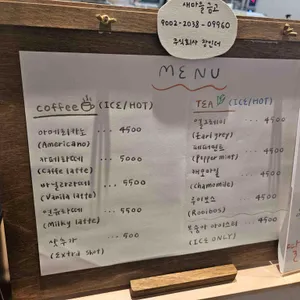 새마을금고
9002-2038-09960
주식회사
MENU
coffee (ICE/HOT)
아메리카노 ... 4500
(Americano)
카페라떼 ... 5000
(Caffe latte)
바닐라라떼 ... 5500
(Vanila latte)
연유라떼 ... 5500
(Milky latte)
샷추가 ... 500
(Extra shot)
TEA (ICE/HOT)
얼그레이 ... 4500
(Earl grey)
페퍼민트 ... 4500
(Peppermint)
캐모마일 ... 4500
(Chamomile)
루이보스 ... 4500
(Rooibos)
복숭아 아이스티 ... 4500
(ICE ONLY)